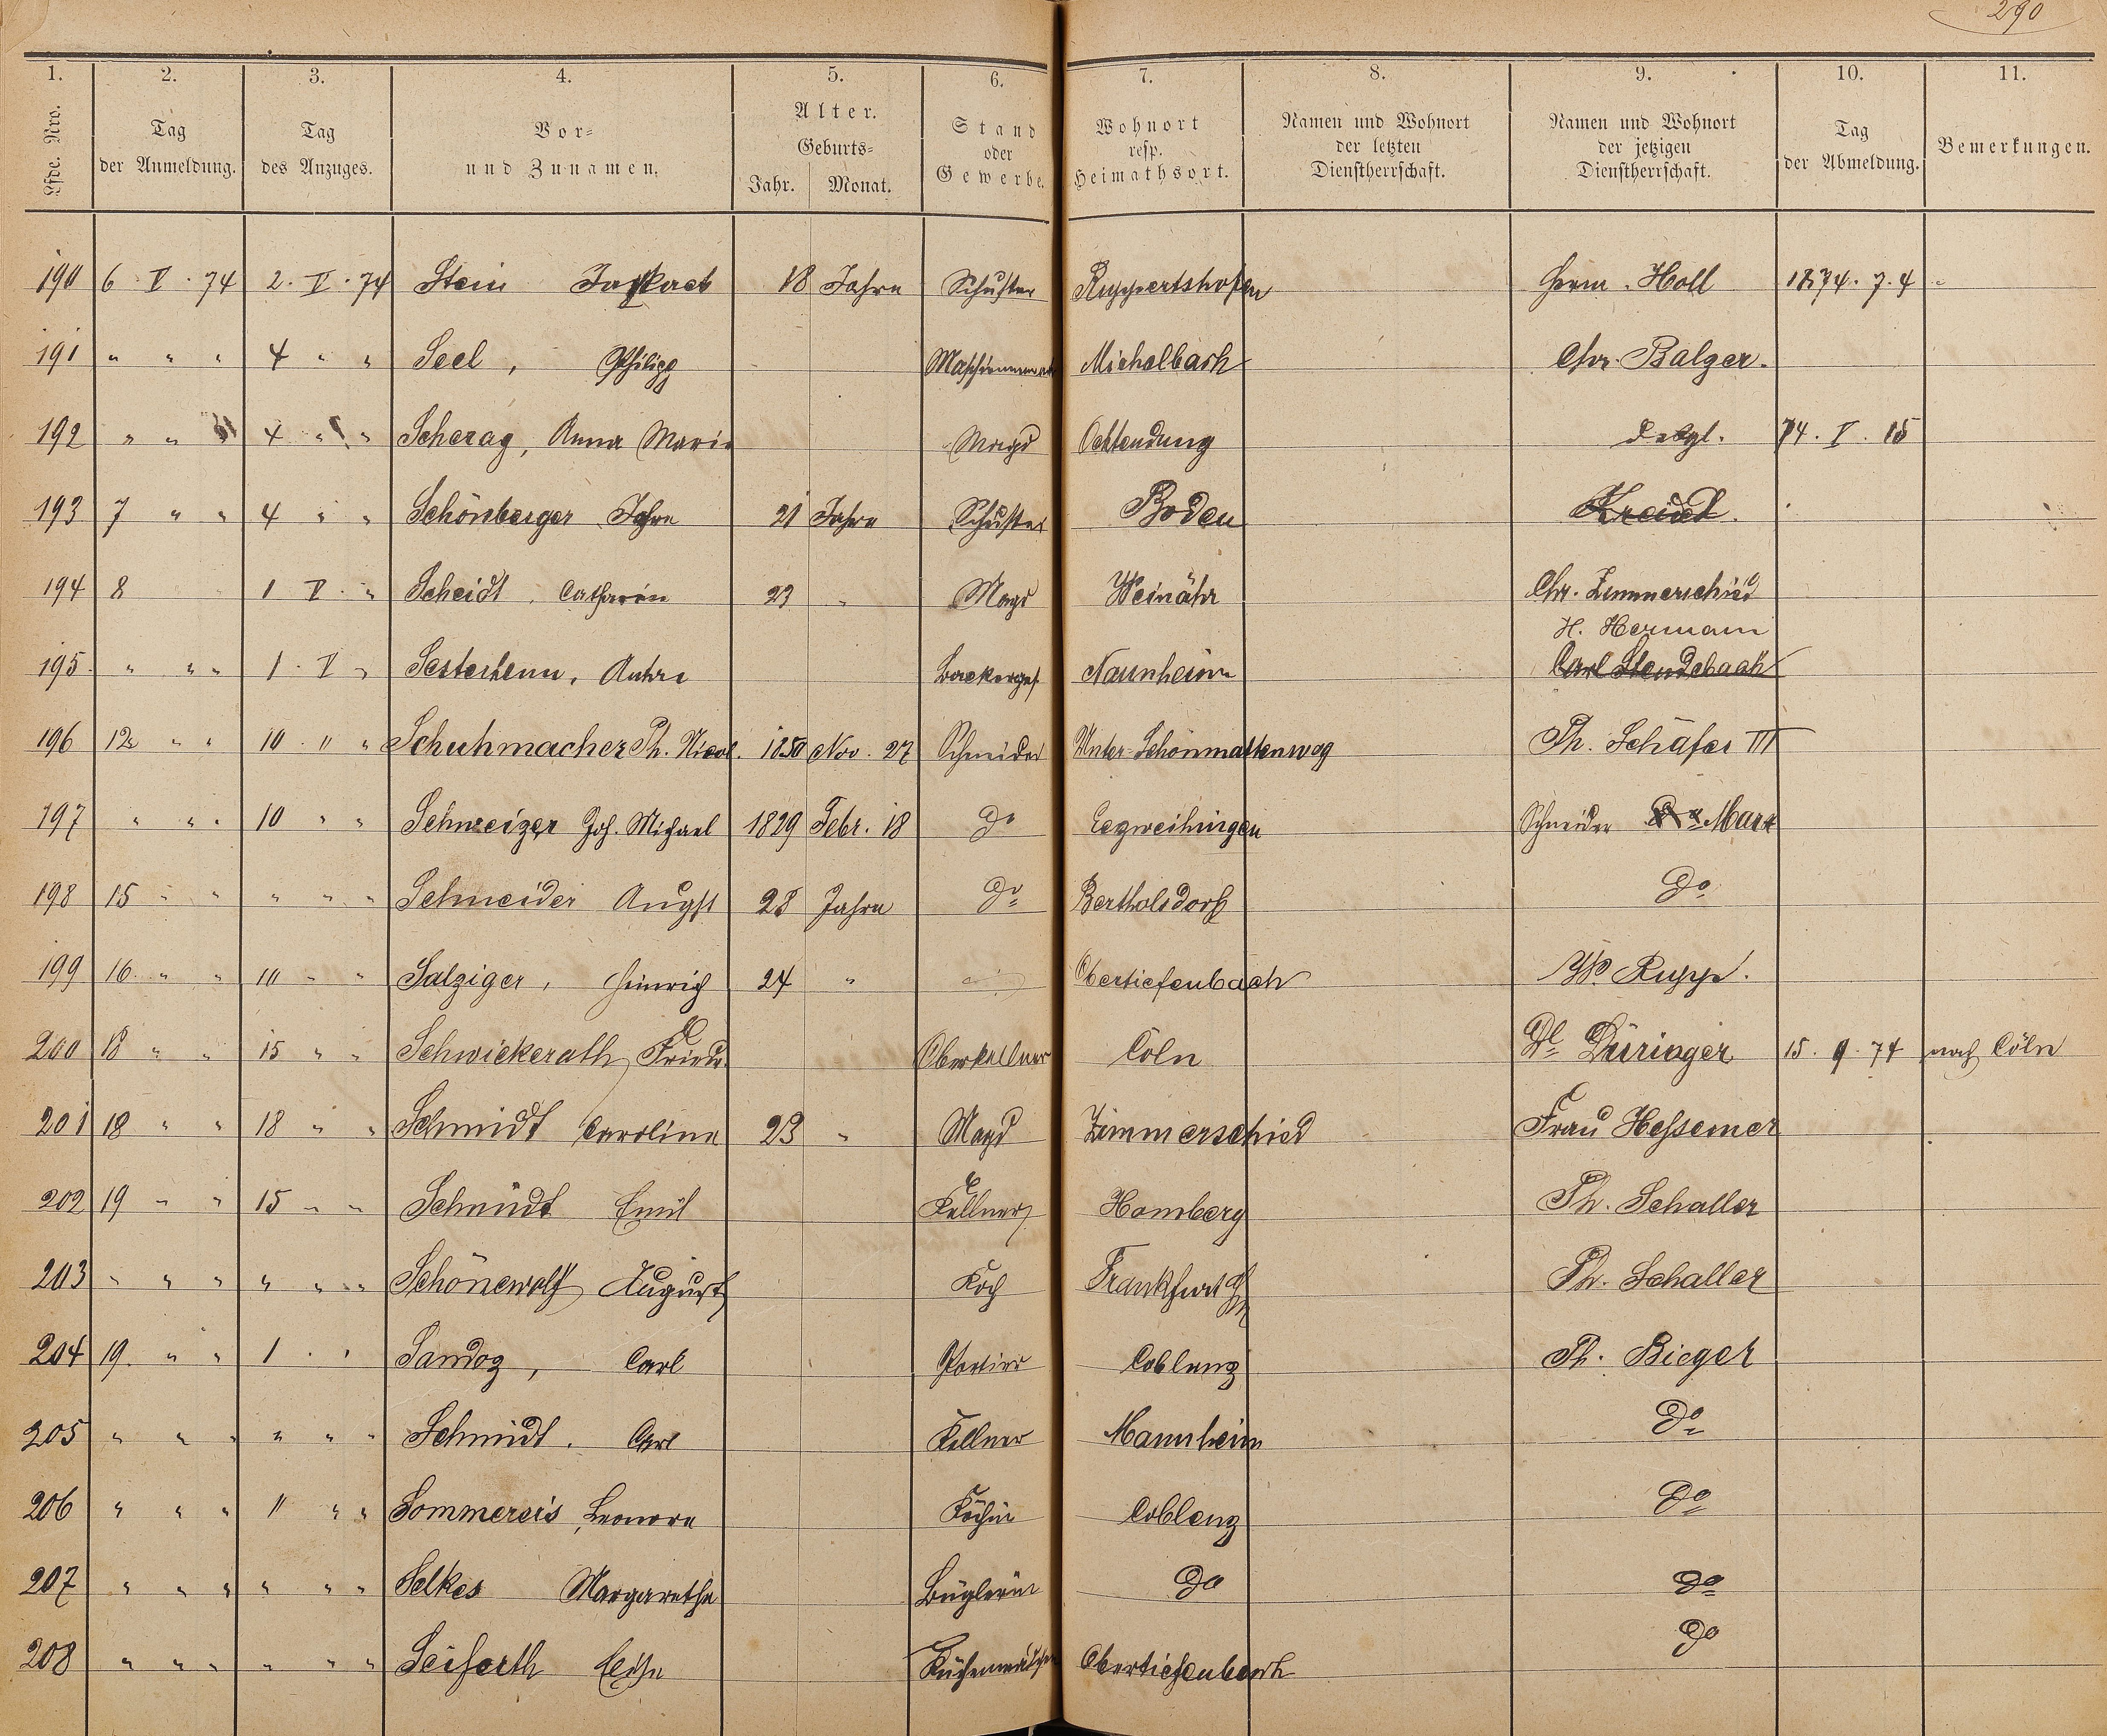 290
1. 2. 3. 4. 5. 6. 7. 8. 9. 10. 11.
Lfde. Nro. Tag der Anmeldung. Tag des Anzuges. Vor= und Zunamen. Alter. Geburts= Jahr. Monat. Stand oder Gewerbe. Wohnort resp. Heimathsort. Namen und Wohnort der letzten Dienstherrschaft. Namen und Wohnort der jetzigen Dienstherrschaft. Tag der Abmeldung. Bemerkungen.
190 6. V. 74 2. V. 74 Stein 18 Jahre Schuster Ruppertshofen Herm. Holl 1874. 7. 4
191 " " " 4 " " Seel, Philipp Michelbach Chr. Balzer.
192 " " " 4 " " Scherag, Anna Maria Magd Ochtendung desgl. 74. V. 15
193 7 " " 4 " " Schönberger 21 Jahre Schuster Boden Kreidel.
194 8 1 V. " Scheidt, Catharin 23 " Magd Weinähr Chr. Zimmerschied
H. Hermann
195 " " " 1. V " Sesterhenn, Naunheim Carl Stendebach
196 12 " " 10. " " Schuhmacher Ph. Nicol. 1850 Nov. 27 Schneider Unter-Schönmattenwag Ph. Schäfer III
197 " " " 10 " " Schweizer Joh. Michael 1829 Febr. 18 do Schneider Marx
198 15 " " " " " Schneider August 28 Jahre do Bertholsdorf do
199 16. " " 10 " " Salziger, Heinrich 24 " Obertiefenbach W. Rupp.
200 18 " " 15 " " Schwickerath, Friedr. Oberkellner Cöln Düringer 15. 9. 74 nach Cöln
201 18 " " 18 " " Schmidt Caroline 23 " Magd Zimmerschied Frau Hessemer
202 19 " " 15 " " Schmidt Emil Kellner Homberg Ph. Schaller
203 " " " " " " Schönewolf August Koch Frankfurt Ph. Schaller
204 19. " " 1. " Sandoz, Carl Portier Coblenz Ph. Bieger
205 " " " " " " Schmidt. Carl Kellner Mannheim do
206 " " " " " " Sommereis, Leonore Köchin Coblenz do
207 " " " " " " Selkes Margarethe Büglerin do do
208 " " " " " " Seiferth Küchenmädchen Obertiefenbach do